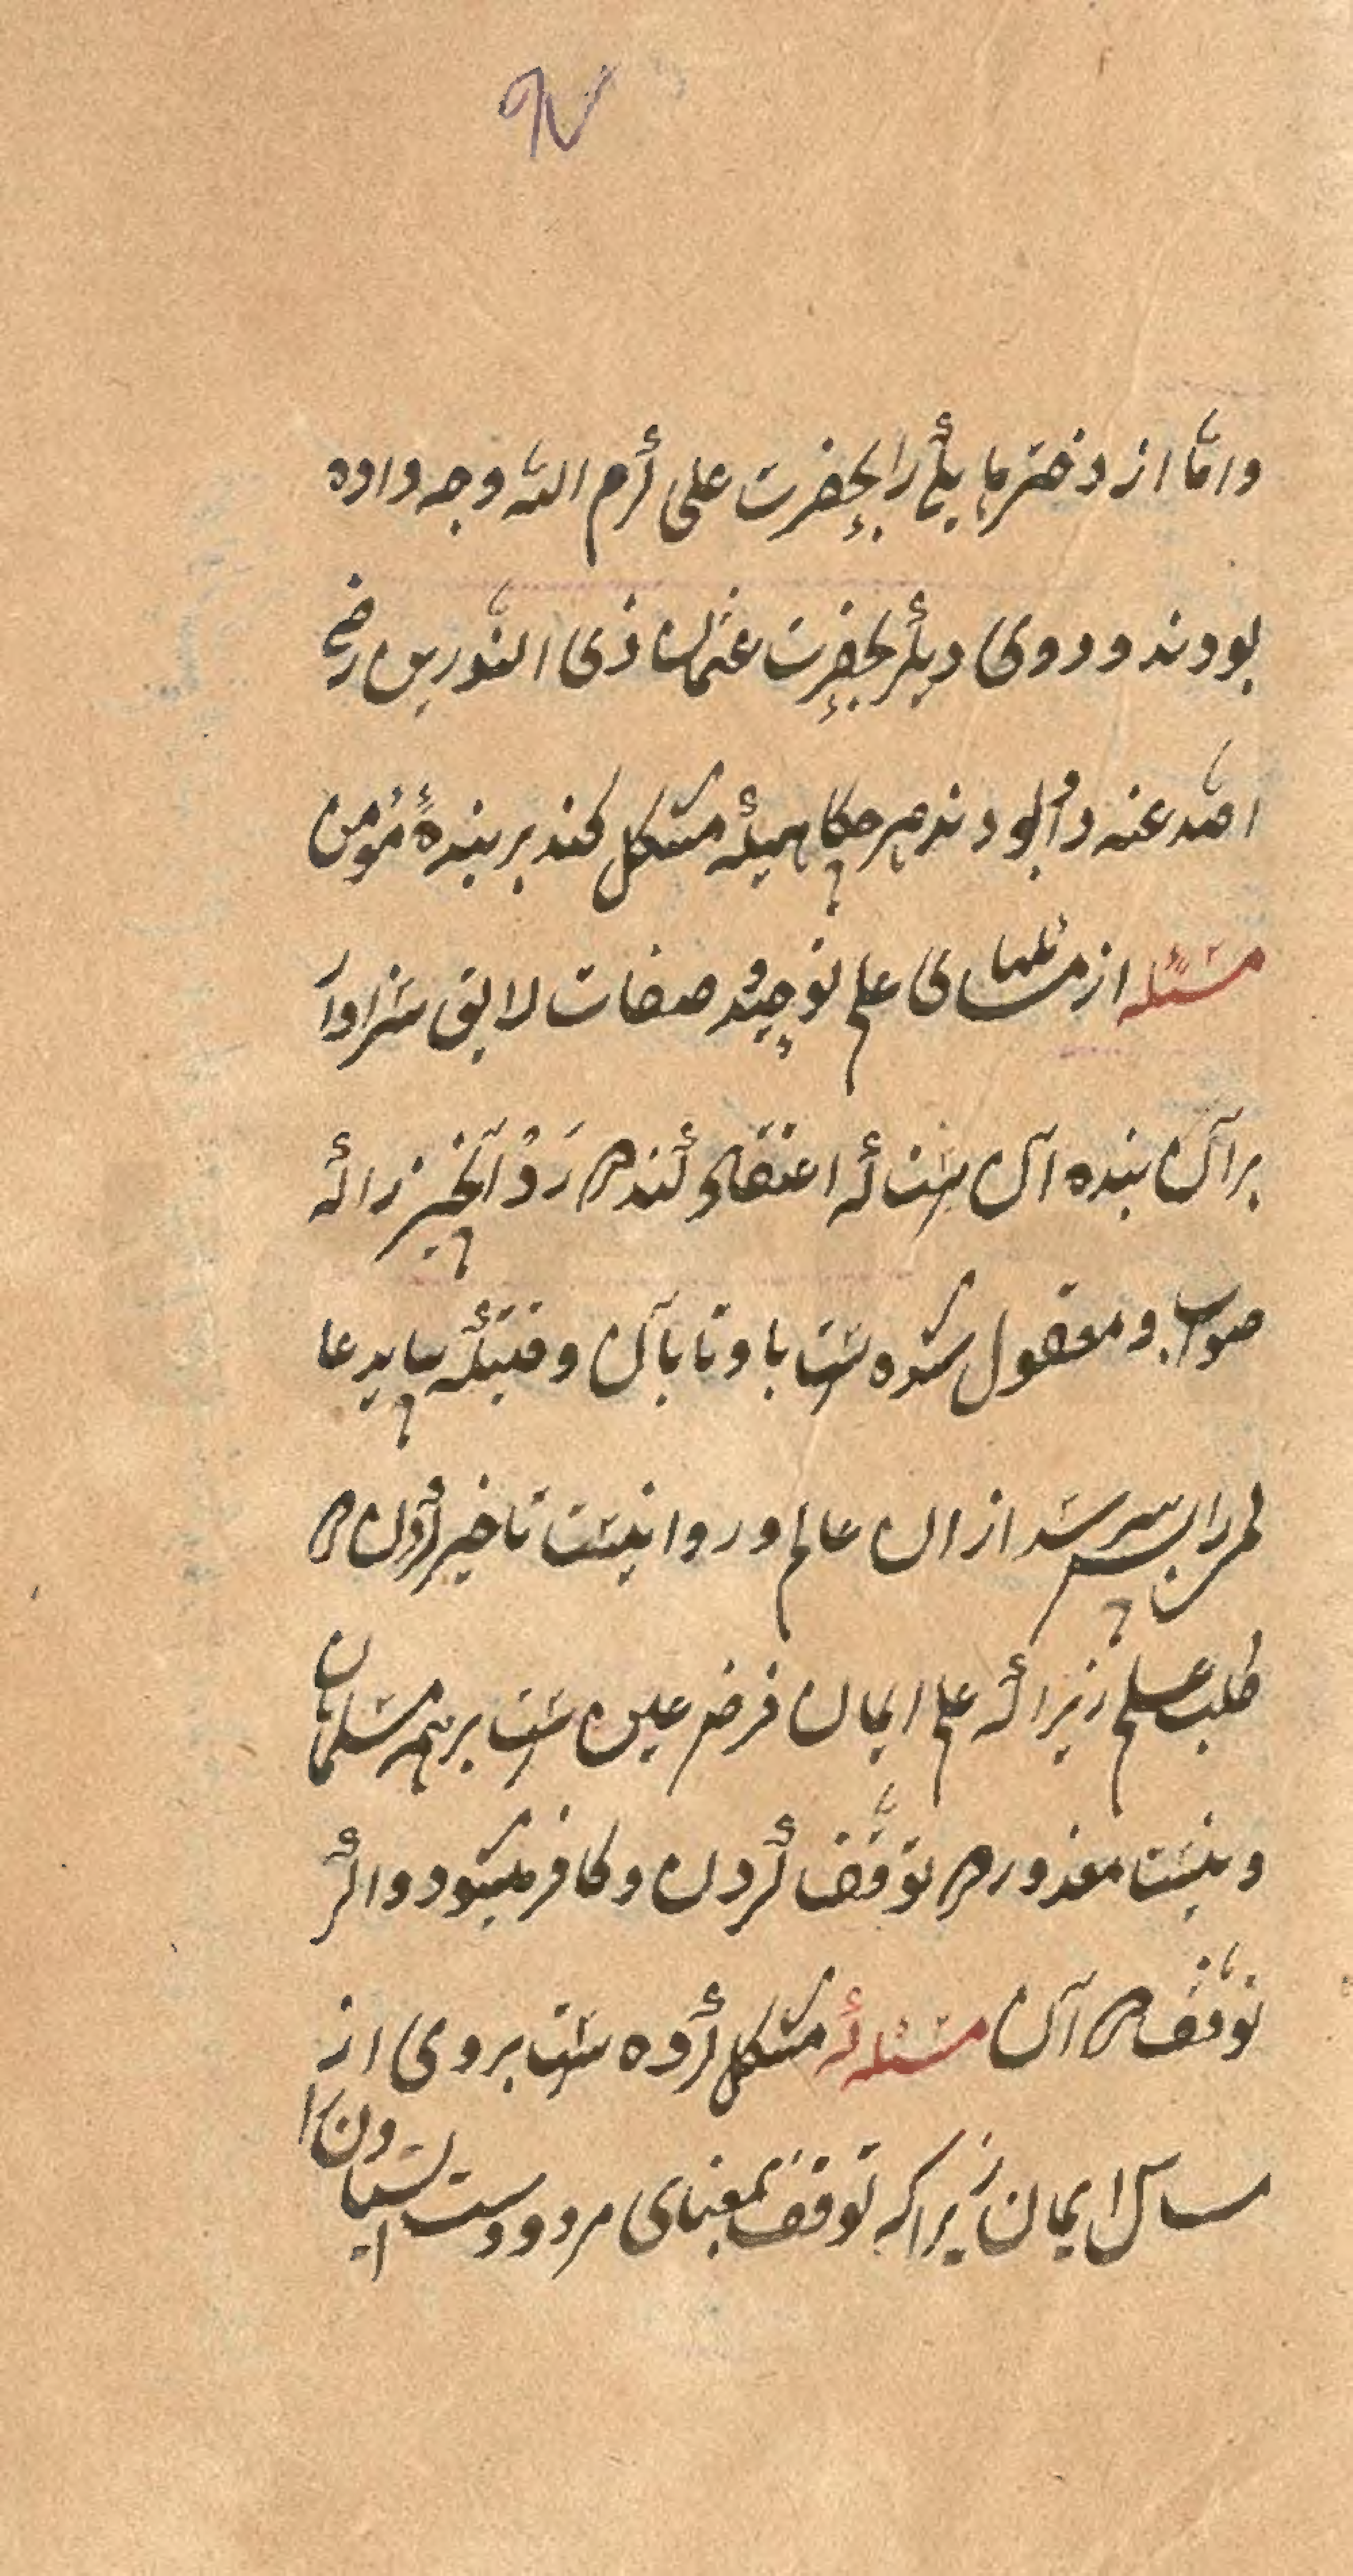 واما از دخترها یکی را بحضرت علی کرم الله وجه داده
بودند و دوی دیگر بحضرت عثمان ذی النورین رضی
الله عنه داده بودند هرگاهیکه مشکل کند بر بندهٔ مؤمن
مسئله از مسئلهای علم توحید و صفات لایق سزاوار
بر آن بنده آن است که اعتقاد کند در رد آنچیز را که
صواب و معقول شده است با و تا بآن وقتیکه بیابد عا
لم را بپرسد از ان عالم و روا نیست تاخیر کردن در
طلب علم زیرا که علم ایمان فرض عین است بر همه مسلمانان
و نیست معذور در توقف کردن و کافر میشود و اگر
توقف در آن مسئله که مشکل کرده است بروی از
مسائل ایمان زیراکه توقف بمعنای